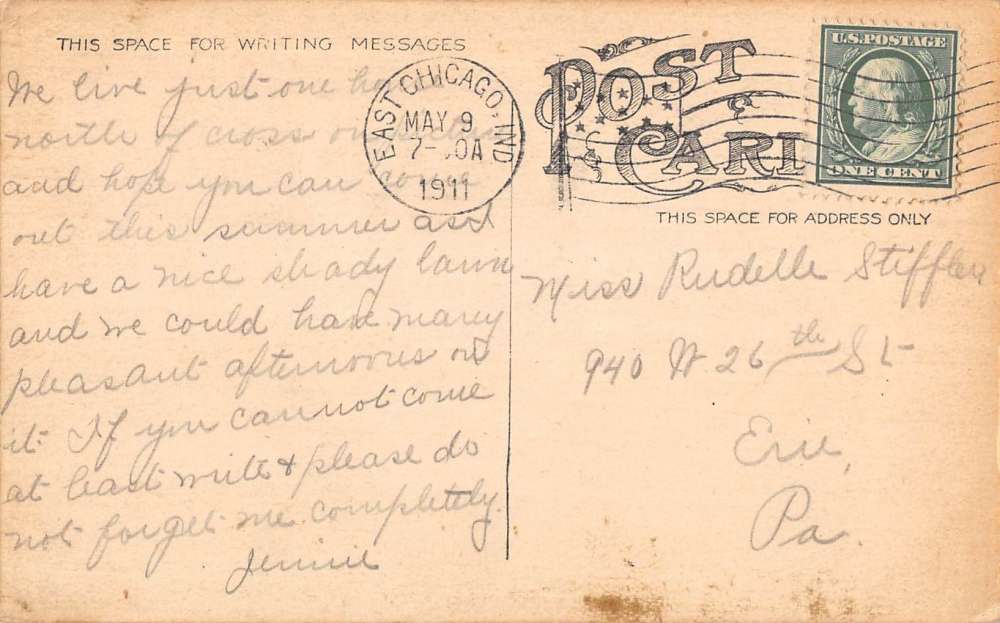 THIS SPACE FOR WRITING MESSAGES
We live just one
north of cross on
and hope you can come
out this summer as I
have a nice shady lawn
and we could have many
pleasant afternoons on
it. If you can not come
at least write & please do
not forget me completely.
Jennie
EAST CHICAGO, IND
MAY 9
7- 0A
1911
POST
CARD
U.S. POSTAGE
ONE CENT
THIS SPACE FOR ADDRESS ONLY
Miss Rudelle Stiffler
940 W 26th St
Erie,
Pa.